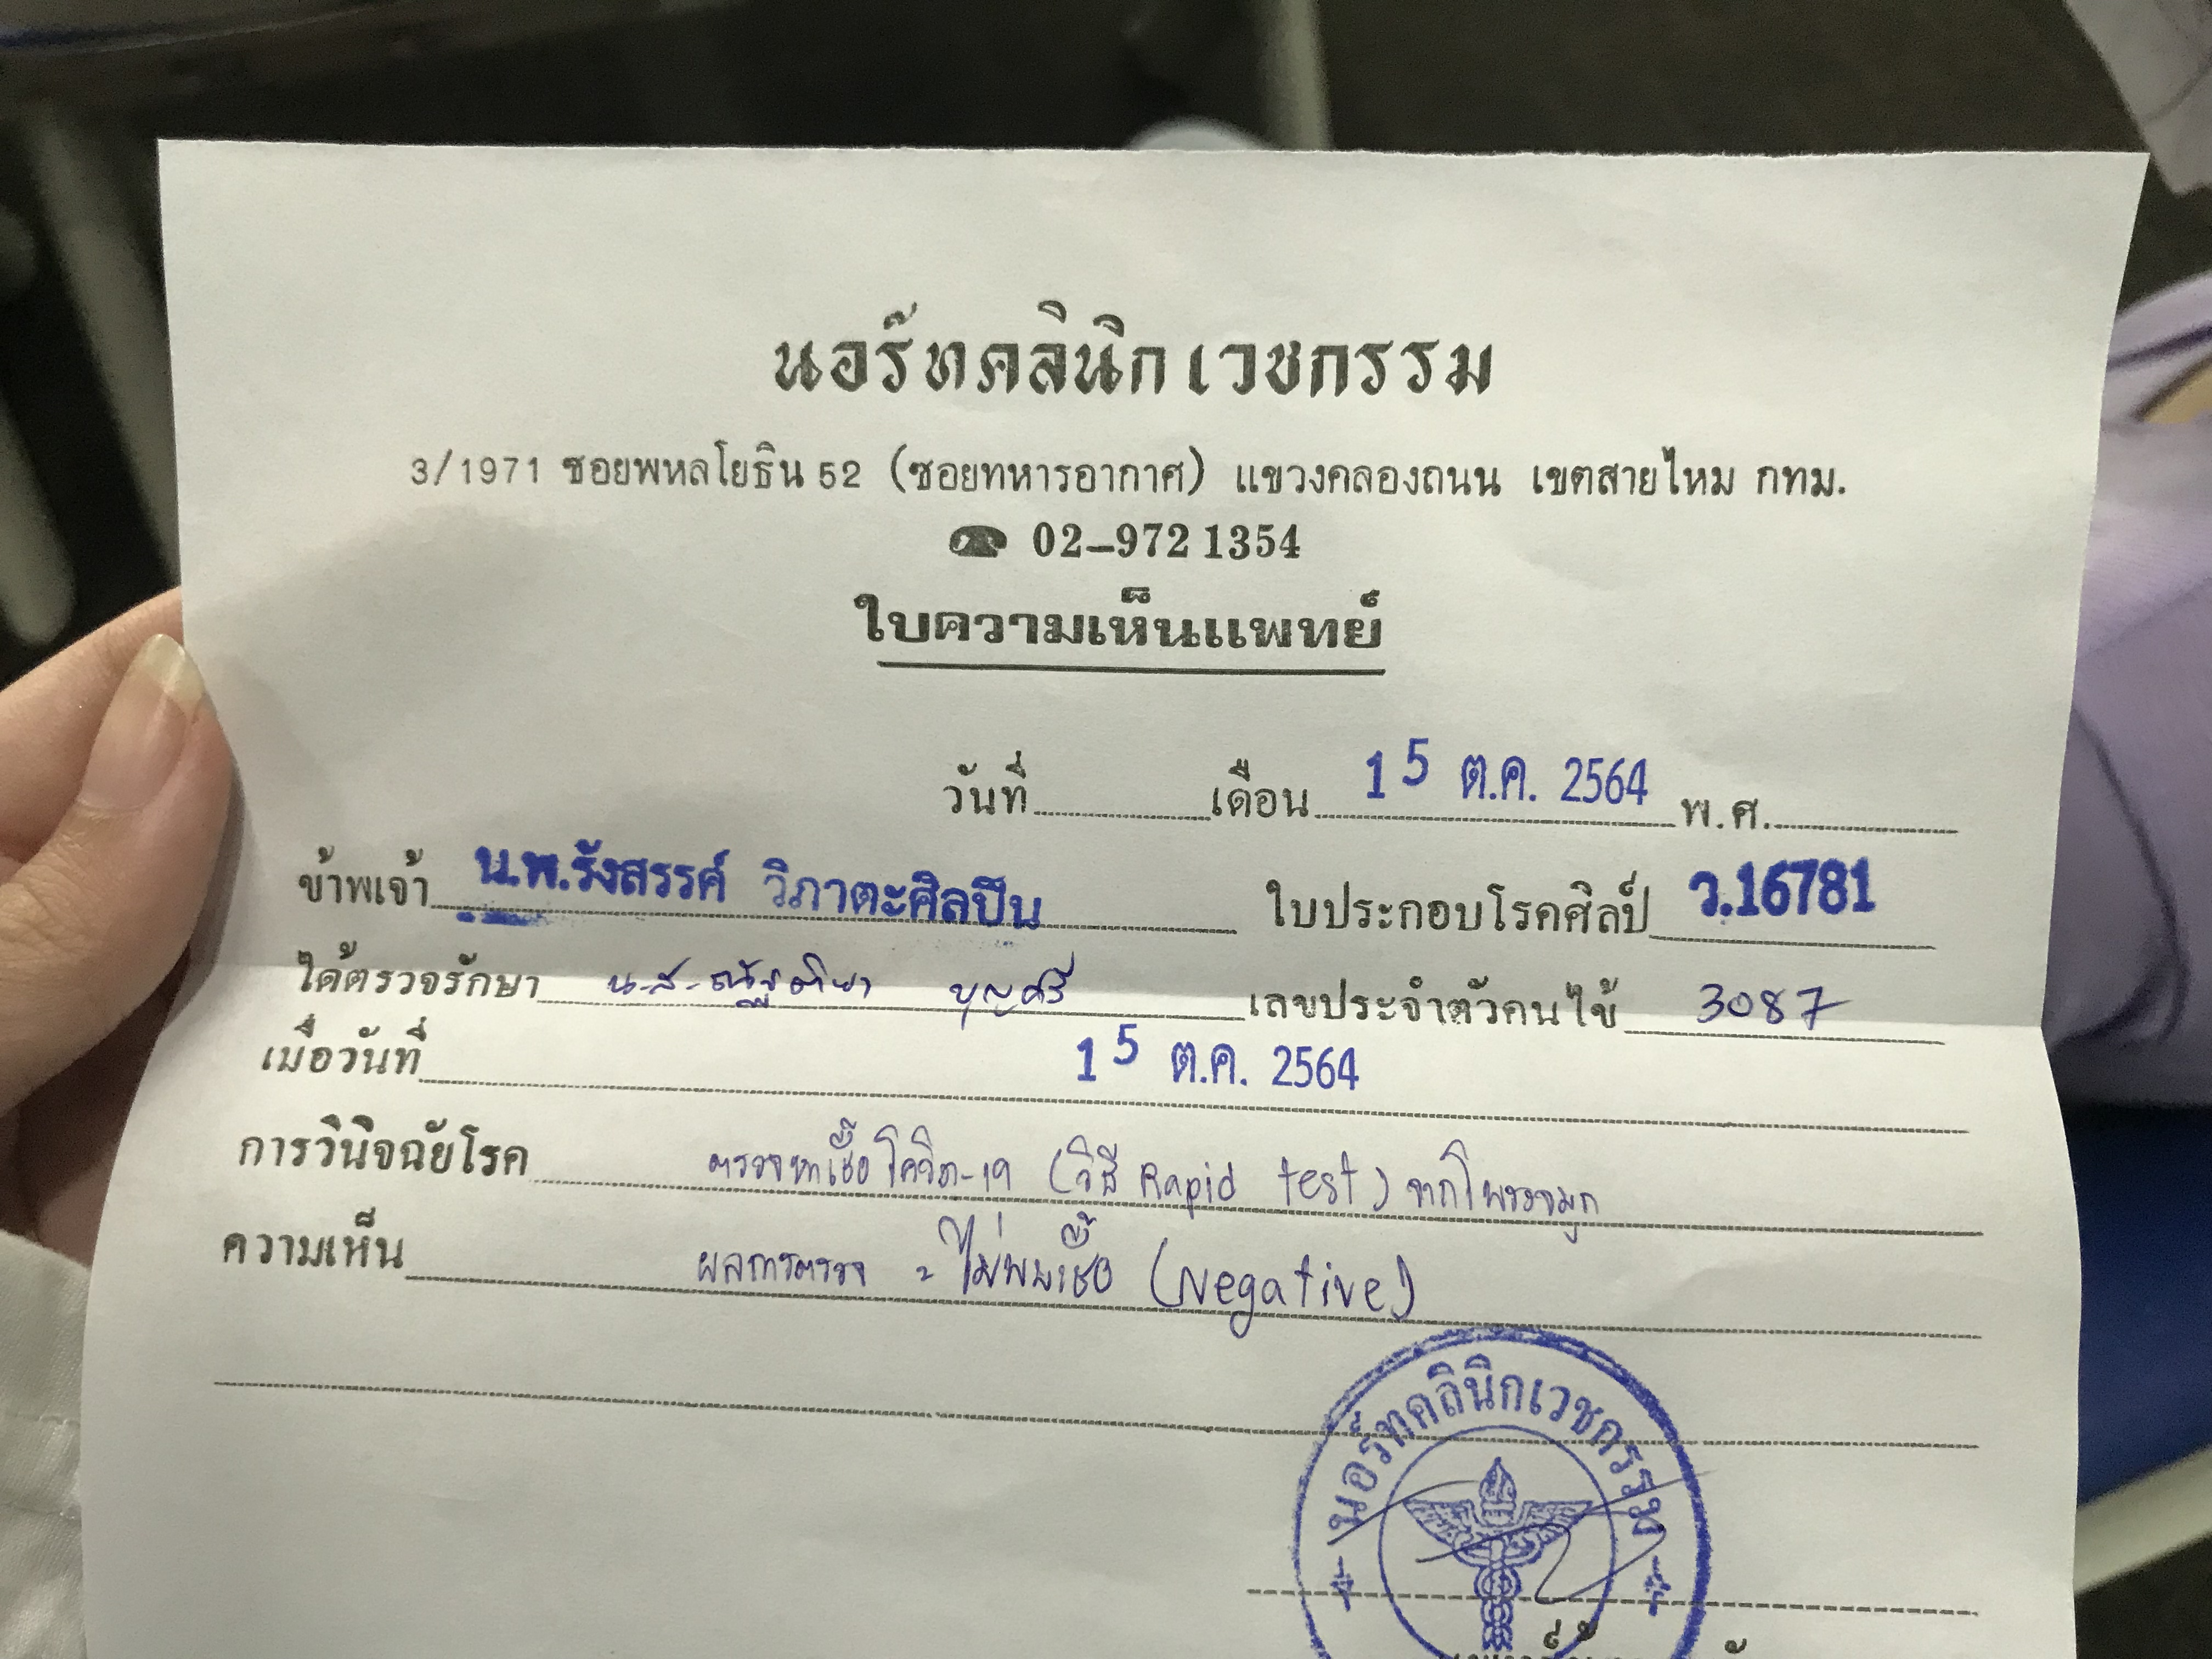 นอร์ทคลินิกเวชกรรม
3/1971 ซอยพหลโยธิน 52 (ซอยทหารอากาศ) แขวงคลองถนน เขตสายไหม กทม.
☎ 02-972 1354
ใบความเห็นแพทย์
วันที่ เดือน 15 ต.ค. 2564 พ.ศ.
ข้าพเจ้า น.พ.รังสรรค์ วิภาตะศิลปิน ใบประกอบโรคศิลป์ ว.16781
ได้ตรวจรักษา น.ส. บุญศรี เลขประจำตัวคนไข้ 3087
เมื่อวันที่ 15 ต.ค. 2564
การวินิจฉัยโรค ตรวจหาเชื้อโควิด-19 (วิธี Rapid test) จากโพรงจมูก
ความเห็น ผลการตรวจ = ไม่พบเชื้อ (Negative)
นอร์ทคลินิกเวชกรรม